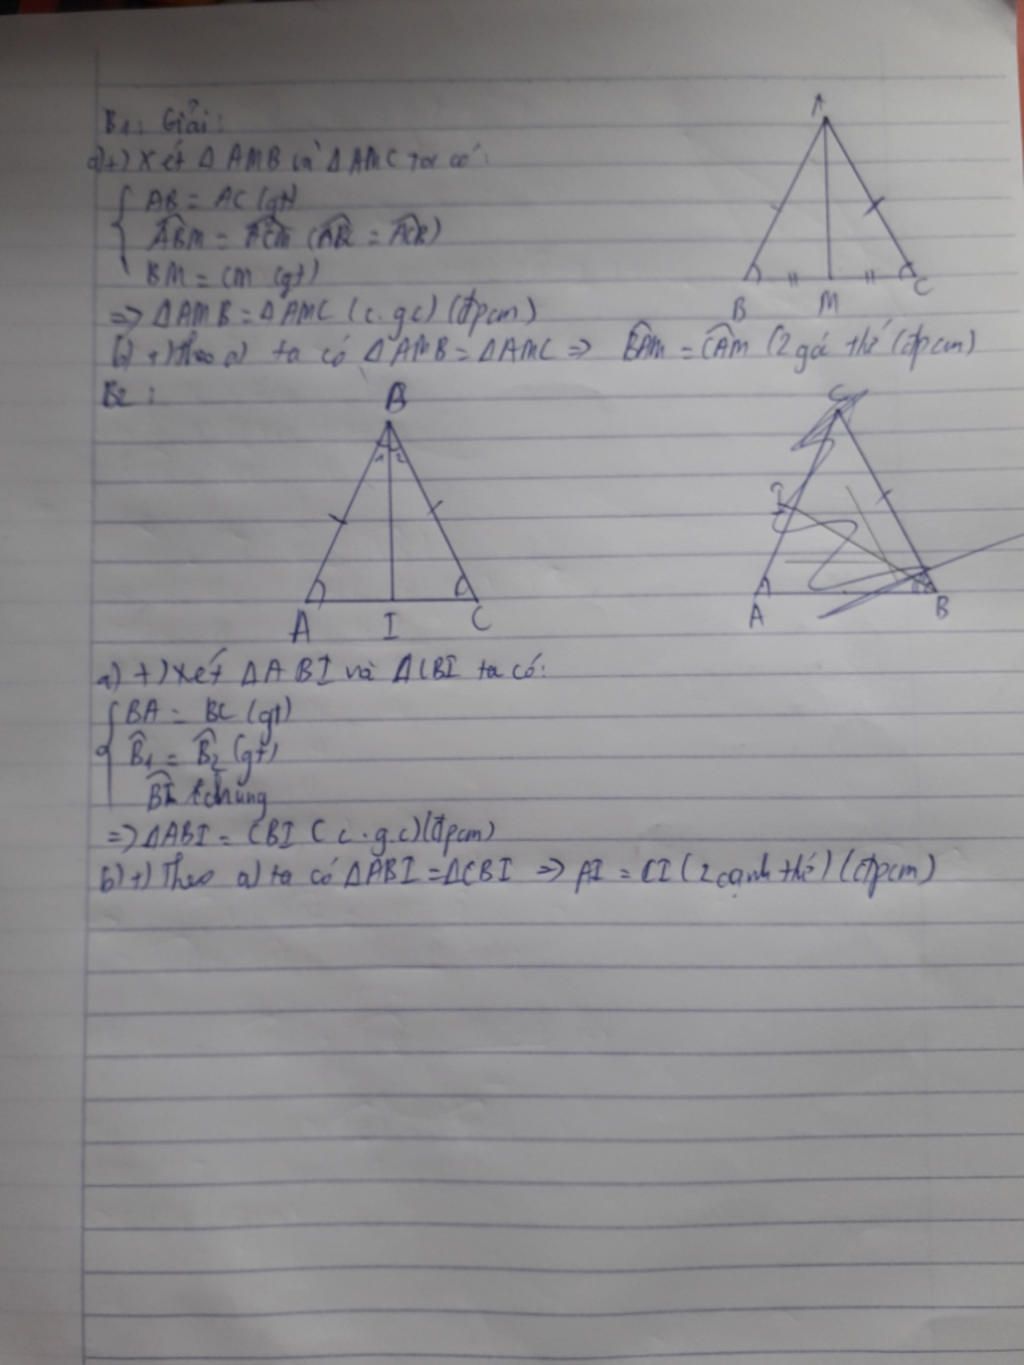 B1: Giải:
a)+) Xét ΔAMB và ΔAMC ta có:
AB = AC (gt)
ABM = ACM
BM = CM (gt)
=> ΔAMB = ΔAMC (c.gc) (đpcm)
b) +) Theo a) ta có ΔAMB = ΔAMC => BAM = CAM (2 góc thế (đpcm)
A
B M C
B2:
B
1 2
A I C
C
I
A B
a) +) Xét ΔABI và ΔCBI ta có:
BA = BC (gt)
B1 = B2 (gt)
BI chung
=> ΔABI = CBI (c.g.c) (đpcm)
b) +) Theo a) ta có ΔABI = ΔCBI => AI = CI (2 cạnh thế) (đpcm)